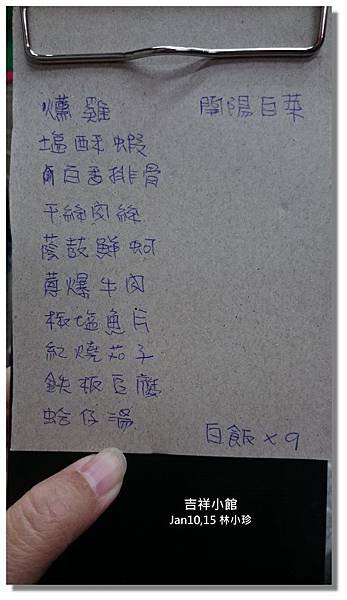 燻雞 開陽白菜
塩酥蝦
排骨
干絲肉絲
蔭鼓鮮蚵
蔥爆牛肉
椒塩魚片
紅燒茄子
鉄板豆腐
蛤仔湯
白飯×9
吉祥小館
Jan10,15 林小珍